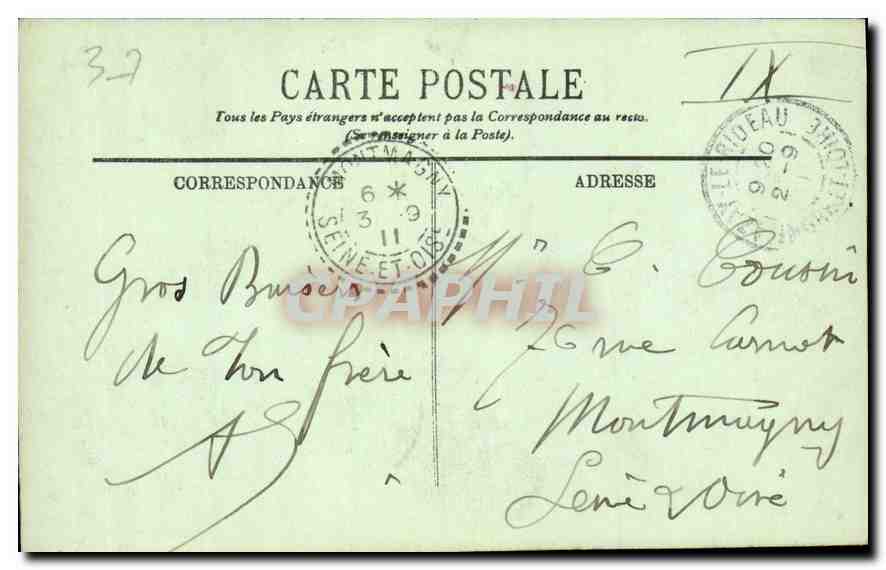 37
IX
CARTE POSTALE
Tous les Pays étrangers n'acceptent pas la Correspondance au recto.
(Se renseigner à la Poste).
CORRESPONDANCE
ADRESSE
MONTMAGNY
6 *
3 - 9
11
SEINE-ET-OISE
LE-RIDEAU
INDRE-ET-LOIRE
9 20
2 - 9
GRAPHIL
Gros Baisers
de ton frère
Mr C. Cousin
76 rue Carnot
Montmagny
Seine & Oise